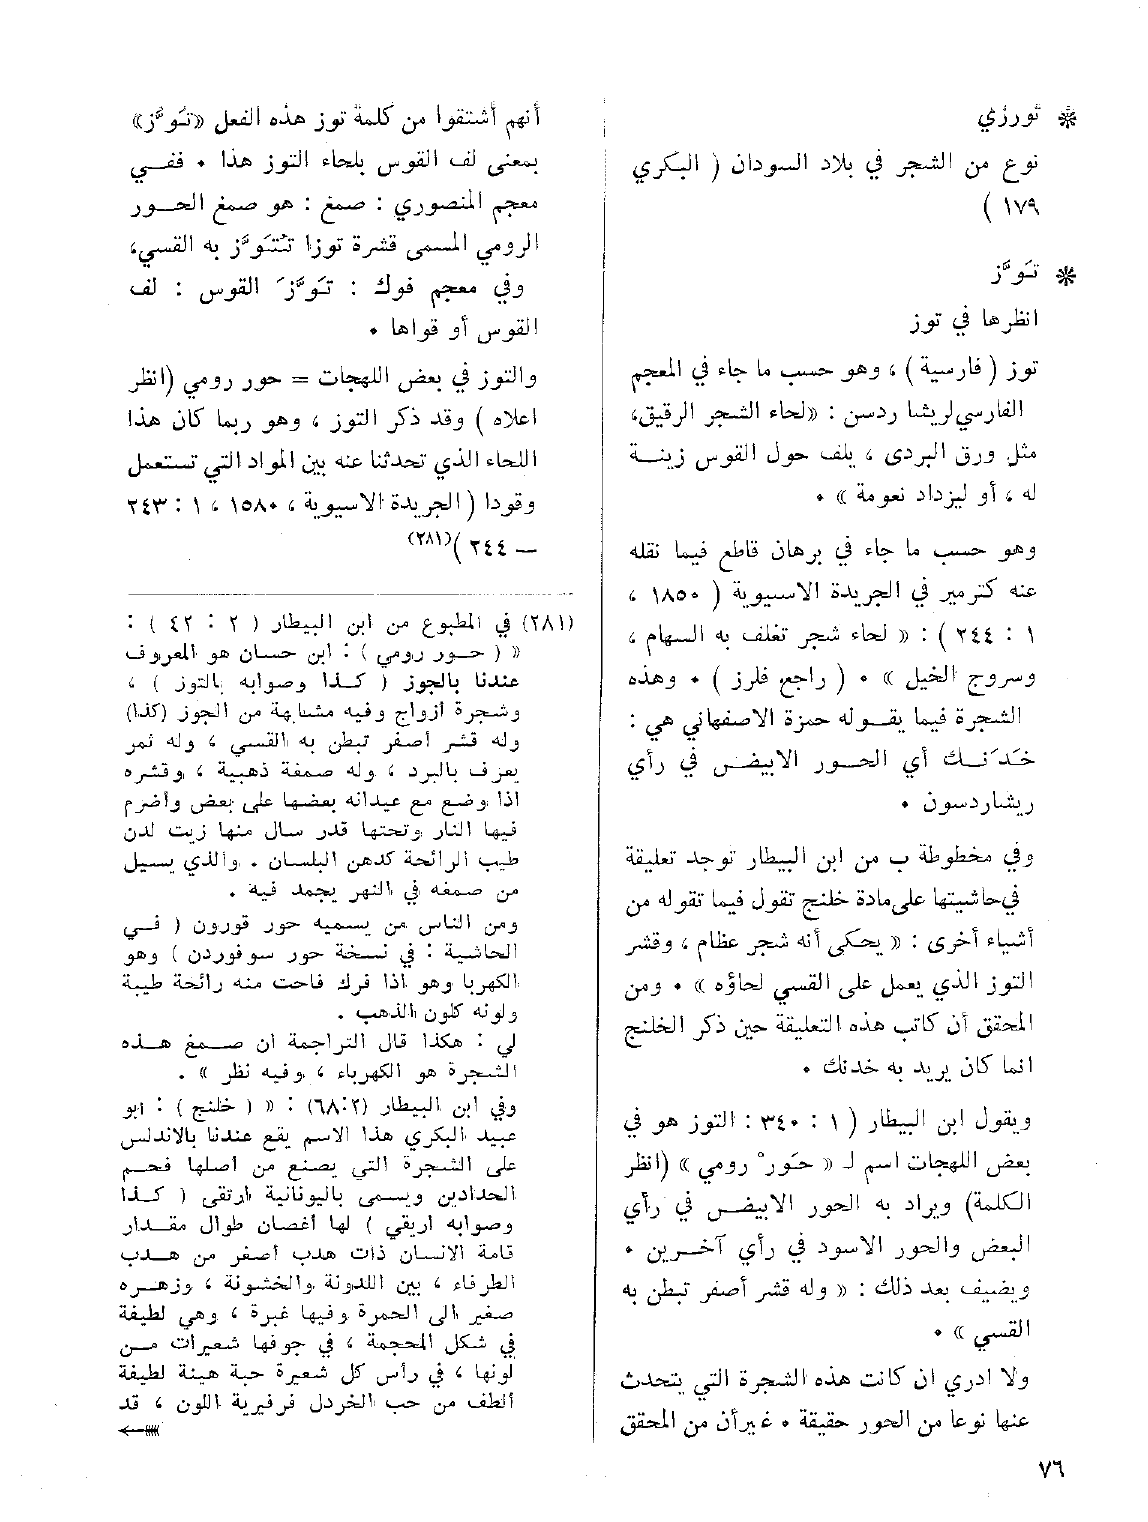 * تورزي
نوع من الشجر في بلاد السودان ( البكري
١٧٩ )
* تَوَّز
انظرها في توز
توز ( فارسية ) ، وهو حسب ما جاء في المعجم
الفارسي لريشا ردسن : «لحاء الشجر الرقيق،
مثل ورق البردى ، يلف حول القوس زينة
له ، أو ليزداد نعومة » .
وهو حسب ما جاء في برهان قاطع فيما نقله
عنه كترمير في الجريدة الاسيوية ( ١٨٥٠ ،
١ : ٢٤٤ ) : « لحاء شجر تغلف به السهام ،
وسروج الخيل » . ( راجع فلرز ) . وهذه
الشجرة فيما يقوله حمزة الاصفهاني هي :
خَدَنك أي الحور الابيض في رأي
ريشاردسون .
وفي مخطوطة ب من ابن البيطار توجد تعليقة
في حاشيتها على مادة خلنج تقول فيما تقوله من
أشياء أخرى : « يحكى أنه شجر عظام ، وقشر
التوز الذي يعمل على القسي لحاؤه » . ومن
المحقق أن كاتب هذه التعليقة حين ذكر الخلنج
انما كان يريد به خدنك .
ويقول ابن البيطار ( ١ : ٣٤٠ : التوز هو في
بعض اللهجات اسم لـ « حَورْ رومي » (انظر
الكلمة) ويراد به الحور الابيض في رأي
البعض والحور الاسود في رأي آخرين .
ويضيف بعد ذلك : « وله قشر أصفر تبطن به
القسي » .
ولا ادري ان كانت هذه الشجرة التي يتحدث
عنها نوعا من الحور حقيقة . غير أن من المحقق
أنهم أشتقوا من كلمة توز هذه الفعل «تَوَّز»
بمعنى لف القوس بلحاء التوز هذا . ففي
معجم المنصوري : صمغ : هو صمغ الحور
الرومي المسمى قشرة توزا تُتَوَّز به القسي،
وفي معجم فوك : تَوَّزَ القوس : لف
القوس أو قواها .
والتوز في بعض اللهجات = حور رومي (انظر
اعلاه ) وقد ذكر التوز ، وهو ربما كان هذا
اللحاء الذي تحدثنا عنه بين المواد التي تستعمل
وقودا ( الجريدة الاسيوية ، ١٥٨٠ ، ١ : ٢٤٣
— ٢٤٤ )(٢٨١)
(٢٨١) في المطبوع من ابن البيطار ( ٢ : ٤٢ ) :
« ( حور رومي ) : ابن حسان هو المعروف
عندنا بالجوز ( كذا وصوابه بالتوز ) ،
وشجرة أزواج وفيه مشابهة من الجوز (كذا)
وله قشر أصفر تبطن به القسي ، وله ثمر
يعرف بالبرد ، وله صمغة ذهبية ، وقشره
اذا وضع مع عيدانه بعضها على بعض وأضرم
فيها النار وتحتها قدر سال منها زيت لدن
طيب الرائحة كدهن البلسان . والذي يسيل
من صمغه في النهر يجمد فيه .
ومن الناس من يسميه حور قورون ( في
الحاشية : في نسخة حور سوفوردن ) وهو
الكهربا وهو اذا فرك فاحت منه رائحة طيبة
ولونه كلون الذهب .
لي : هكذا قال التراجمة ان صمغ هذه
الشجرة هو الكهرباء ، وفيه نظر » .
وفي ابن البيطار (٦٨:٢) : « ( خلنج ) : ابو
عبيد البكري هذا الاسم يقع عندنا بالاندلس
على الشجرة التي يصنع من أصلها فحم
الحدادين ويسمى باليونانية ارتقى ( كذا
وصوابه اريقي ) لها أغصان طوال مقدار
قامة الانسان ذات هدب أصفر من هدب
الطرفاء ، بين اللدونة والخشونة ، وزهره
صغير الى الحمرة وفيها غبرة ، وهي لطيفة
في شكل المحجمة ، في جوفها شعيرات من
لونها ، في رأس كل شعيرة حبة هينة لطيفة
ألطف من حب الخردل فرفيرية اللون ، قد
٧٦